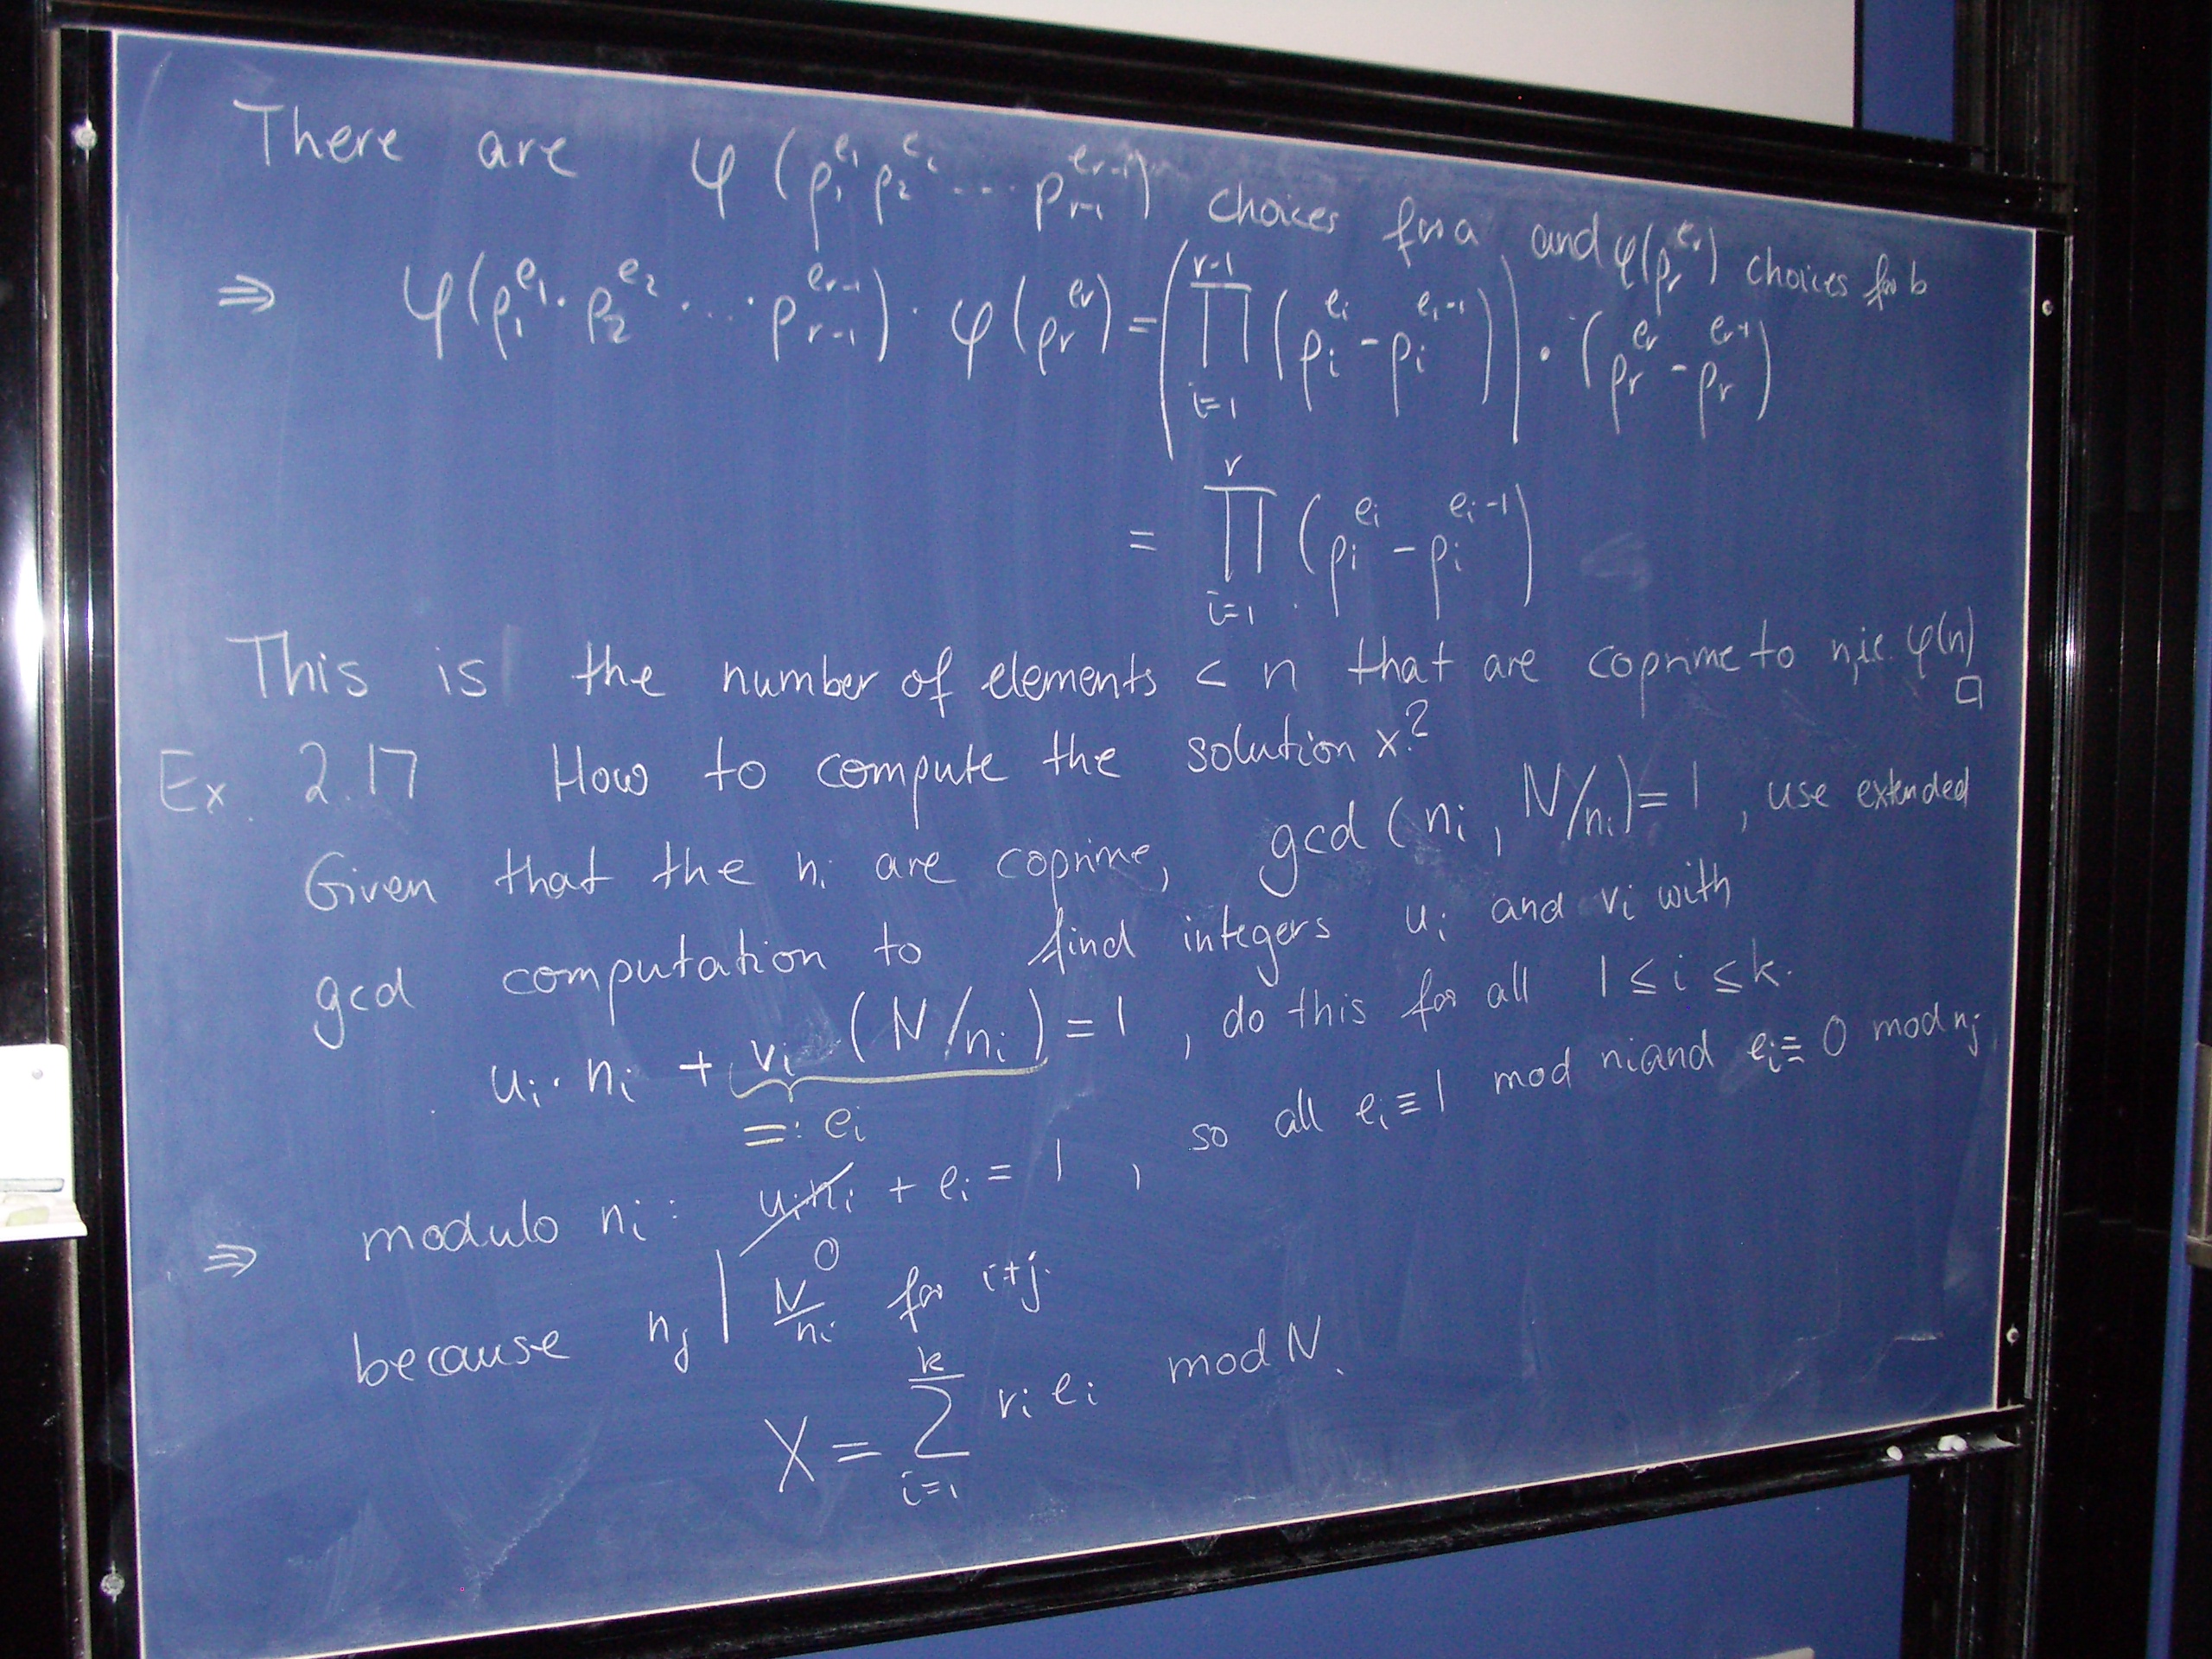 There are φ(p₁^{e₁} p₂^{e₂} ... p_{r-1}^{e_{r-1}}) choices for a and φ(p_r^{e_r}) choices for b
⇒ φ(p₁^{e₁} · p₂^{e₂} · ... · p_{r-1}^{e_{r-1}}) · φ(p_r^{e_r}) = (∏_{i=1}^{r-1} (p_i^{e_i} - p_i^{e_i-1})) · (p_r^{e_r} - p_r^{e_r-1})
= ∏_{i=1}^{r} (p_i^{e_i} - p_i^{e_i-1})
This is the number of elements < n that are coprime to n, i.e. φ(n) □
Ex. 2.17 How to compute the solution x?
Given that the n_i are coprime, gcd(n_i, N/n_i) = 1, use extended
gcd computation to find integers u_i and v_i with
u_i · n_i + v_i (N/n_i) = 1, do this for all 1 ≤ i ≤ k.
=: e_i
⇒ modulo n_i: u_i n_i + e_i ≡ 1, so all e_i ≡ 1 mod n_i and e_i ≡ 0 mod n_j
0
because n_j | N/n_i for i ≠ j.
X = ∑_{i=1}^{k} r_i e_i mod N.